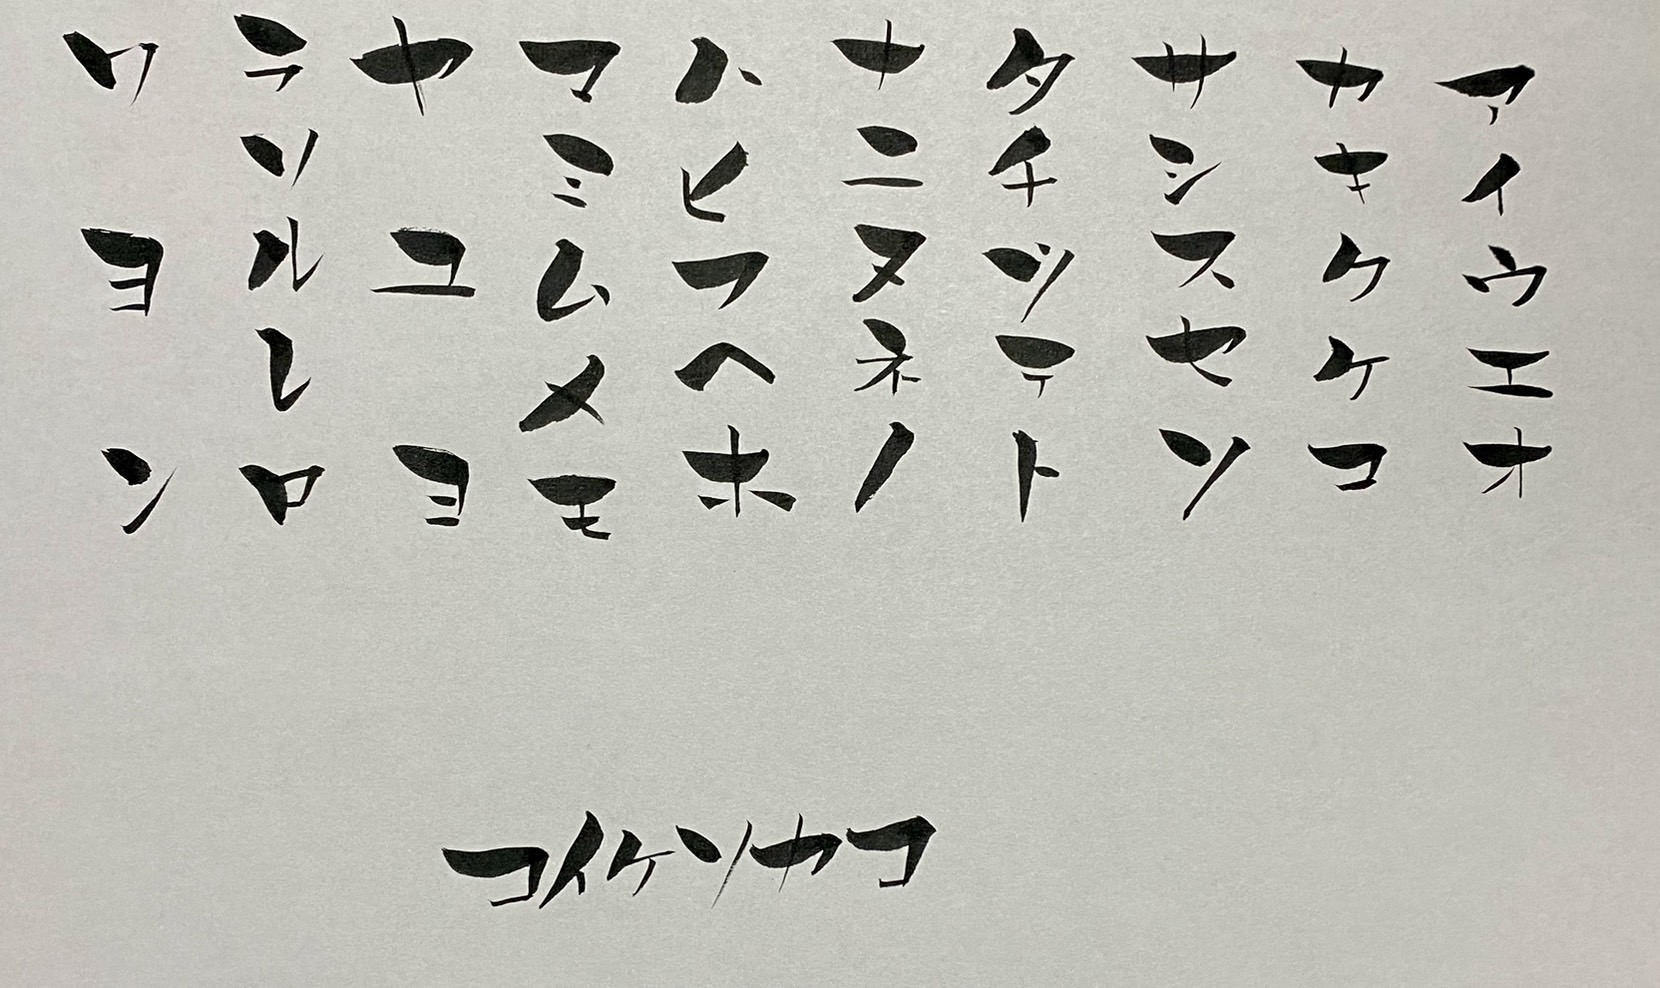 アイウエオ
カキクケコ
サシスセソ
タチツテト
ナニヌネノ
ハヒフヘホ
マミムメモ
ヤユヨ
ラリルレロ
ワヲン
コイケリカコ